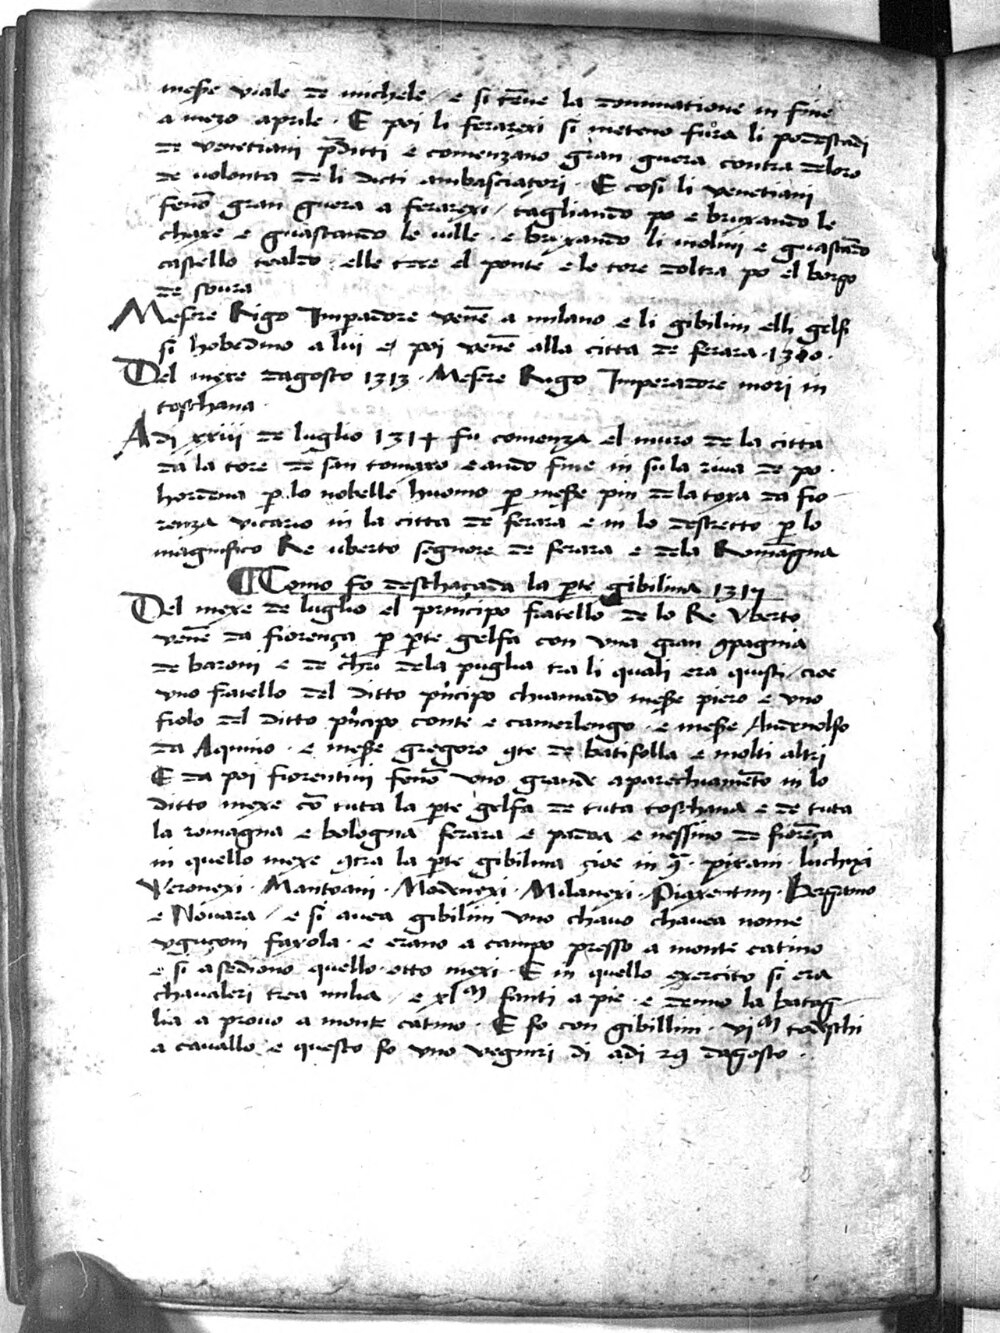 mesẽ viale de michele / e si tẽne la dominatione in fine
a mezo aprile · E poi li ferarexi si meteno fuora li podestadi
de venetiani p̃ditti e comenzano gran guera contra deloro
de volonta de li dicti ambasciatori · E cosi li venetiani
fenõ gran guera a ferarexi / tagliando po e bruxando le
chaxe e guastando le ville · e bruxando li molini e guastãdo
castello tealdo · elle tore el ponte e le tore doltra po el borgo
de soura
Mesere Rigo Imperadore venẽ a milano e li gibilini elli gelfi
si hobedino a lui e poi venẽ alla citta de ferara · 1310 ·
Del mexe dagosto 1313 · Mesere Rigo Imperadore mori in
toschana ·
Adi xxiii de luglio 1314 fu comenza el muro de la citta
da la tore de san tomaxo e ando fine in su la riva de po ·
hordena p lo nobelle huomo p mesẽ pin de la toxa da fio-
renza vicario in la citta de ferara e in lo destretto p lo
magnifico Re uberto segnore de ferara e dela Romãgna
¶ Como fo deschaçada la pte gibilina 1317
Del mexe de luglio el principo fratello de lo Re Vberto
venẽ da fiorença p pte gelfa con vna gran 9pagnia
de baroni e de chri dela puglia tra li quali era questi / cioe
vno fratello del ditto pñcipo chiamado mesẽ piero e vno
fiolo del ditto pñcipo conte e camerlengo · e mesẽ
da Aquino · e mesẽ gregoro 9te de batifolla e molti altri
E da poi fiorentini fenõ vno grande aparechiamẽto in lo
ditto mexe cõ tuta la pte gelfa de tuta toschana e de tuta
la romagna e bologna ferara e padoa e nessino de fiorẽça
in quello mexe 9tra la pte gibilina çioe in q̃ · pixani · luchixi
Veronexi · Mantoani · Modenexi · Milanexi · Piaxentini · Bergamo
e Novara / e si avea gibilini vno chavo chavea nome
vguçoni faxola · e erano a campo presso a monte catino
e si asediono quello otto mexi · E in quello exercito si era
chavaleri trea milia / e xl m fanti a pie · e deno la batag-
lia a provo a monte catino · E fo con gibillini · vi m todeschi
a cavallo e questo fo vno vegniri di adi 29 dagosto ·